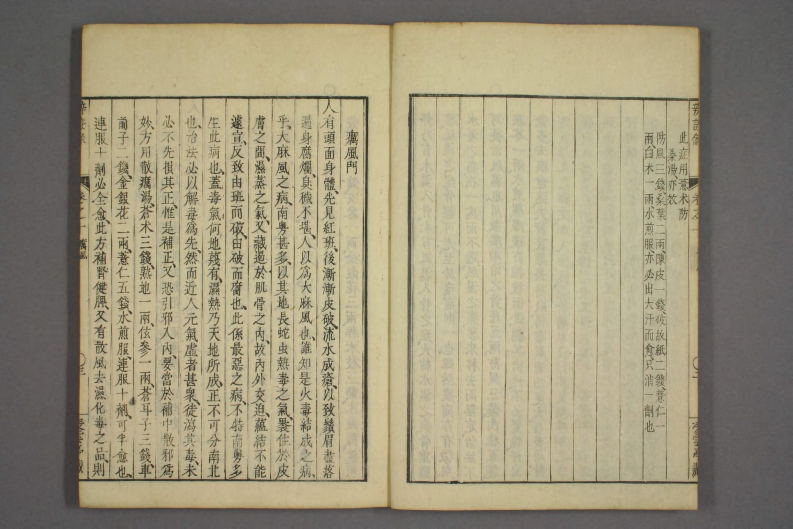 此症用薏朮防
桑湯亦效
防風三錢桑葉二兩陳皮一錢破故紙二錢薏仁一
兩白朮一兩水煎服亦必出大汗而愈只消一劑也
癘風門
人有頭面身體先見紅斑後漸漸皮破流水成瘡以致鬚眉盡落
遍身腐爛臭穢不堪人以為大麻風也誰知是火毒結成之病
乎大麻風之病南粵甚多以其地長蛇虫熱毒之氣裏住於皮
膚之間濕蒸之氣又藏遏於肌骨之內故內外交迫蘊結不能
遽宣反致由斑而破由破而腐也此係最惡之病不特南粵多
生此病也蓋毒氣何地蔑有濕熱乃天地所成正不可分南北
也治法必以解毒為先然而近人元氣虛者甚衆徒瀉其毒未
必不先損其正惟是補正又恐引邪入內要當於補中散邪為
妙方用散癘湯蒼朮三錢熟地一兩玄參一兩蒼耳子三錢車
前子二錢金銀花二兩薏仁五錢水煎服連服十劑可半愈也
連服十劑必全愈此方補腎健脾又有散風去濕化毒之品則